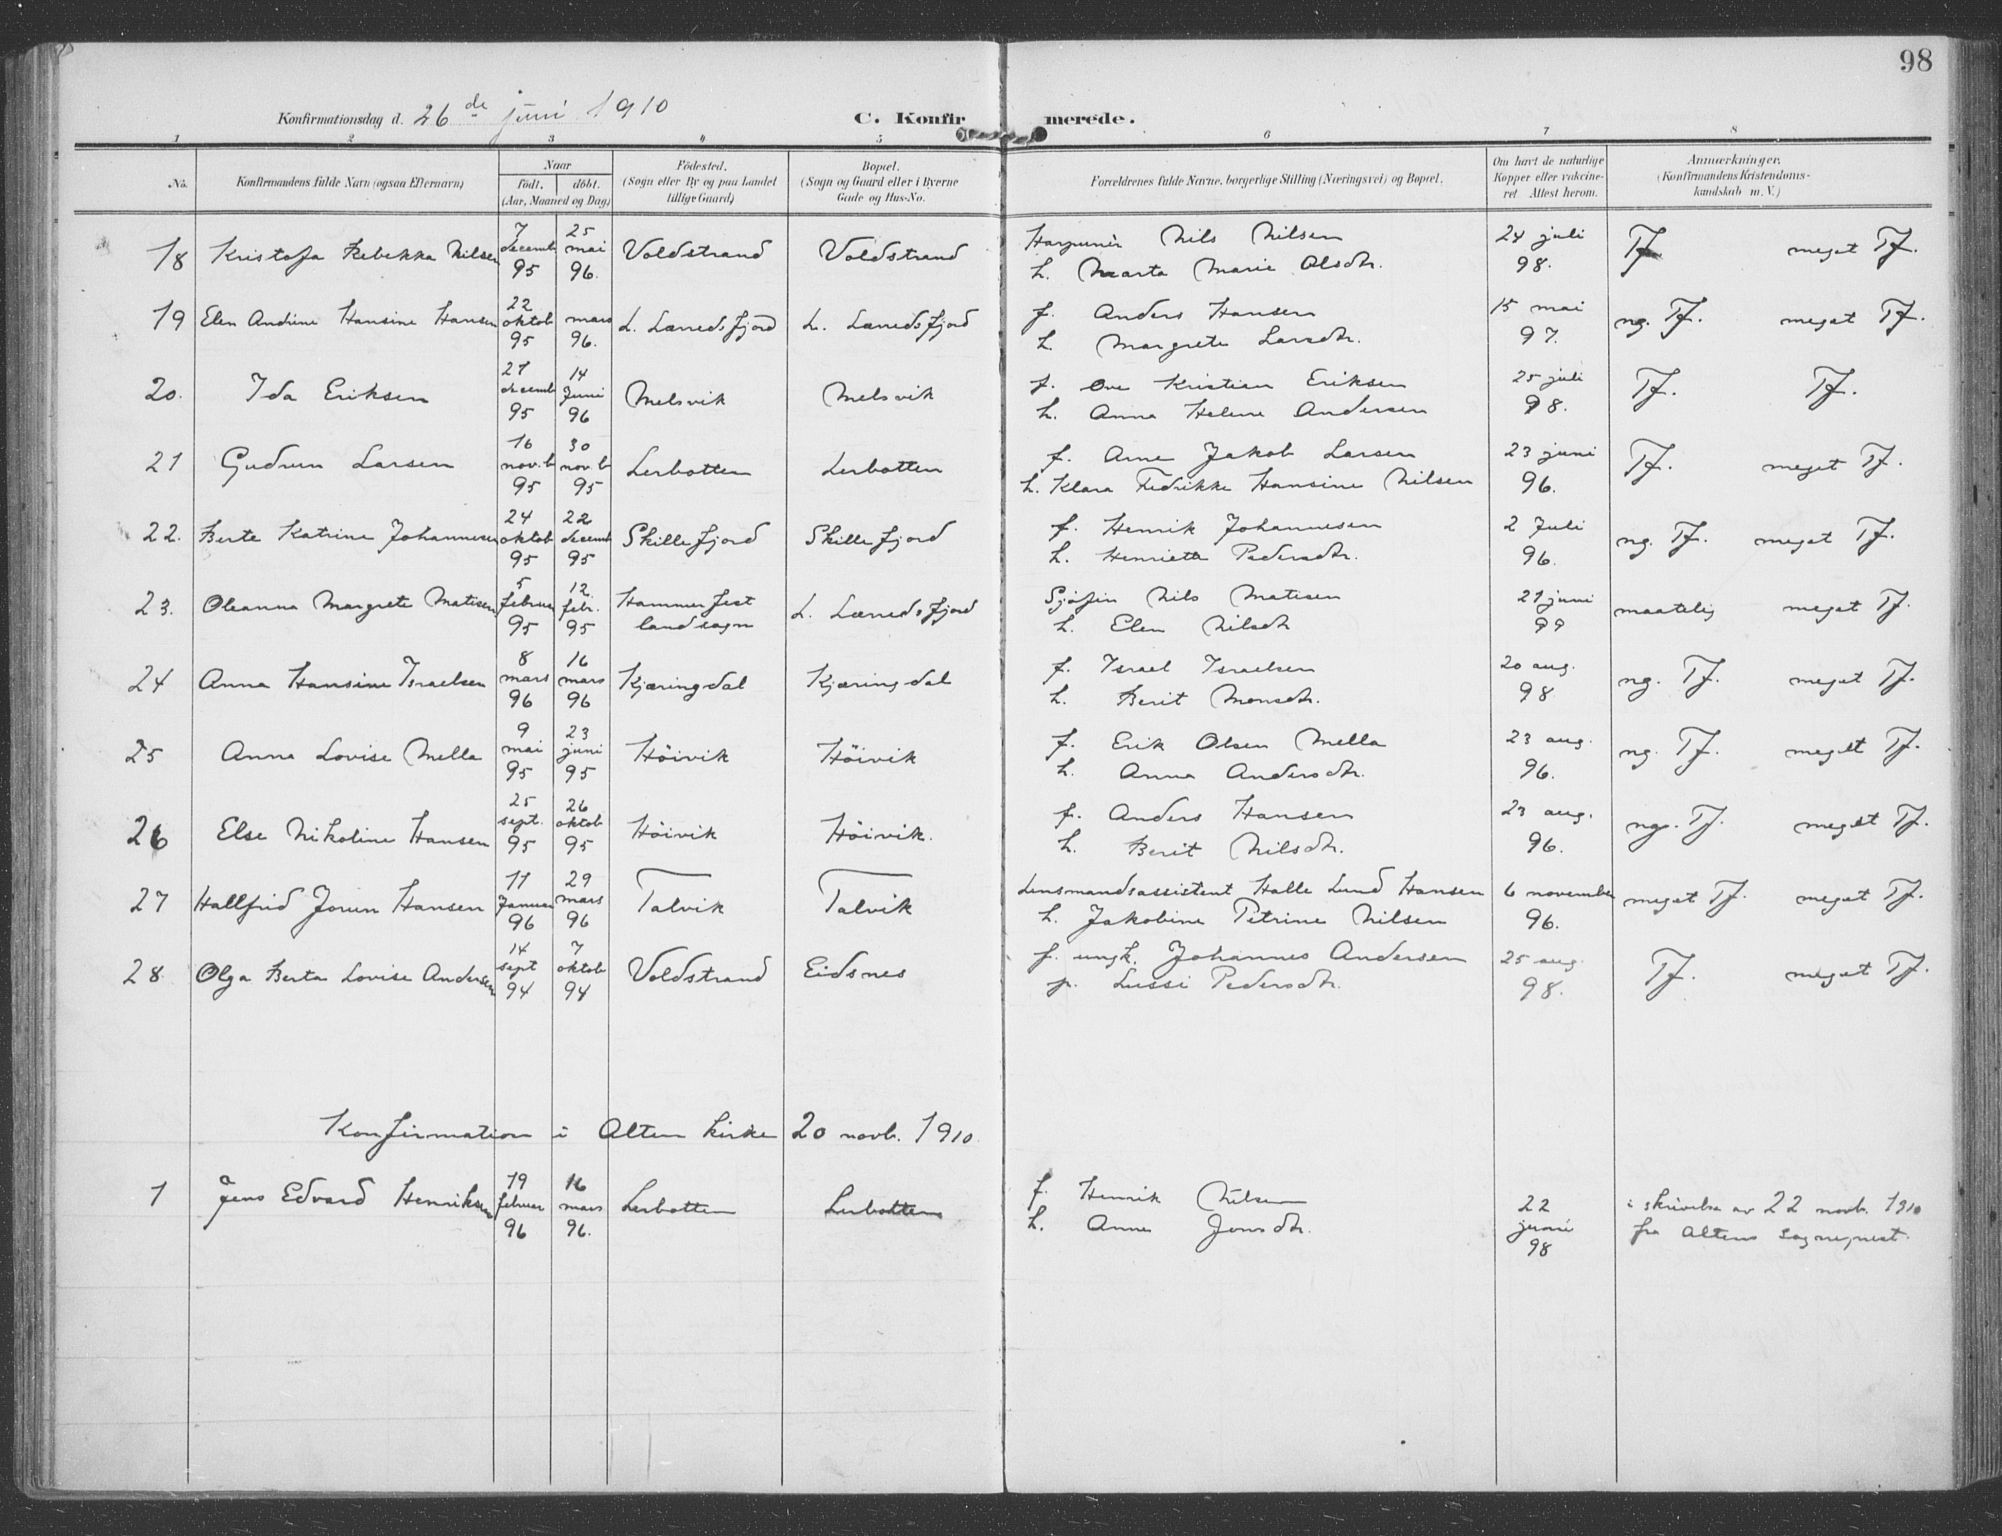 98
Konfirmationsdag d. 26de juni 1910 C. Konfirmerede.
1 2 3 4 5 6 7 8
No.
Konfirmandens fulde Navn (ogsaa Efternavn)
Naar
født. døbt.
(Aar, Maaned og Dag)
Fødested.
(Sogn eller By og paa Landet
tillige Gaard)
Bopæl.
(Sogn og Gaard eller i Byerne
Gade og Hus-No.
Forældrenes fulde Navne, borgerlige Stilling (Næringsvei) og Bopæl.
Om havt de naturlige
Kopper eller vakcine-
ret Attest herom.
Anmærkninger.
(Konfirmandens Kristendoms-
kundskab m. V.)
18 Kristofa Rebekka Nilsen 7 decemb 95 25 mai 96. Voldstrand Voldstrand Harpunér Nils Nilsen 24 juli 98. Tf meget Tf.
h. Marta Marie Olsdtr.
19 Elen Andrine Hansine Hansen 22 oktob 95 mars 96. L. Lærredsfjord L. Lærredsfjord f. Anders Hansen 15 mai 97. ng. Tf. meget Tf.
h. Margrete Larsdtr.
20. Ida Eriksen 27 decemb 95 14 Juni 96 Melsvik Melsvik f. Ove Kristian Eriksen 25 juli 98. Tf. Tf.
h. Anna Helene Andersen
21 Gudrun Larsen 16 nov.b 95 30 nov.b 95 Lerbotten Lerbotten f. Arne Jakob Larsen 23 juni 96. Tf. meget Tf.
h. Klara Fredrikke Hansine Nilsen
22. Berte Katrine Johannesen 24 oktob 95 22 decemb 95 Skillefjord Skillefjord f. Henrik Johannesen 2 Juli 96. ng. Tf. meget Tf.
h. Henriette Pedersdtr.
23. Oleanna Margrete Matisen 5 februar 95 12. febr. 95 Hammerfest landsogn L. Lærredsfjord Sjøfin Nils Matisen 21 juni 99 maatelig meget Tf.
h. Elen Nilsdtr
24 Anna Hansine Israelsen 8 mars 96 16 mars 96 Kjæringdal Kjæringdal f. Israel Israelsen 20 aug. 98 ng. Tf. meget Tf.
h. Berit Monsdtr.
25 Anna Lovise Mella 9 mai 95 23 juni 95 Høivik Høivik f. Erik Olsen Mella 23 aug. 96. ng. Tf. meget Tf.
h. Anna Andersdtr.
26 Else Nikoline Hansen 25 sept. 95 26 oktob 95 Høivik Høivik. f. Anders Hansen 23 aug. 96. ng. Tf. meget Tf.
h. Berit Nilsdtr.
27 Hallfrid Jorun Hansen 11 Januar 96 29 mars 96 Talvik Talvik Lensmandsassistent Halle Lund Hansen 6 november 96. meget Tf. meget Tf.
h. Jakobine Petrine Nilsen
28. Olga Berta Lovise Andersen 14 sept 94 7 oktob 94 Voldstrand Eidsnes f. ungk. Johannes Andersen 25 aug. 98. Tf. meget Tf.
p. Lussi Pedersdtr.
Konfirmation i Alten kirke 20 novb. 1910.
1 Jens Edvard Henriksen 19 februar 96 16 mars 96. Lerbotten Lerbotten f. Henrik Nilsen 22 juni 98 i skrivelse av 22 novb. 1910
h. Anne Jonsdtr. fra Altens sogneprest.